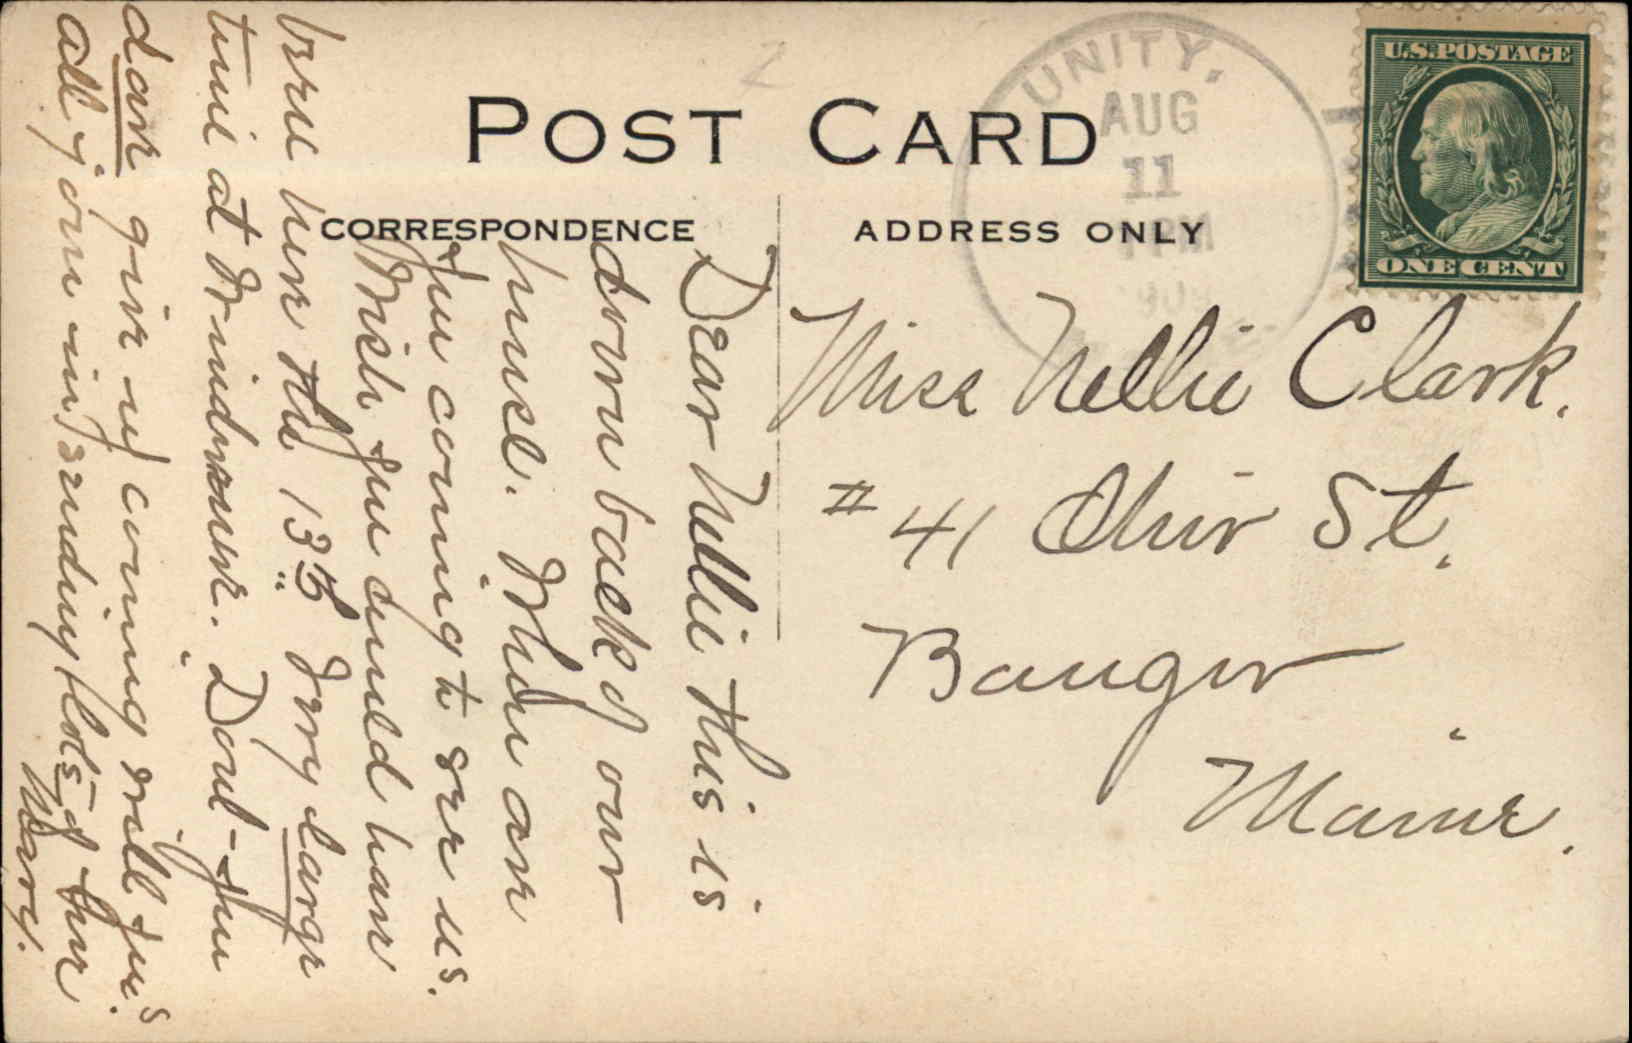 POST CARD
CORRESPONDENCE
ADDRESS ONLY
UNITY,
AUG
11
PM
U.S. POSTAGE
ONE CENT
Miss Nellie Clark.
# 41 Ohio St.
Bangor
Maine.
Dear Nellie this is
down back of our
house. When are
you coming to see us.
Wish you could have
bree here the 13th Very large
time at Windmere. Don't you
dare give up coming will you.
all join in sending lots of love
Mary.